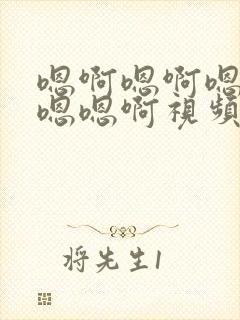 嗯啊嗯啊嗯
嗯嗯啊視頻
将先生1